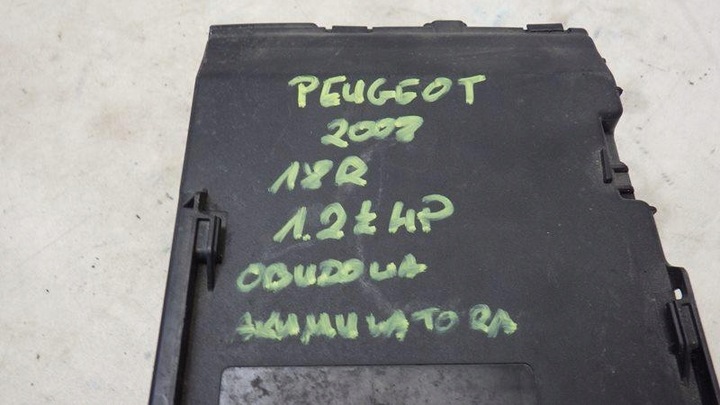 PEUGEOT
2008
18R
1.2Ł HP
OBUDOWA
AKUMULATORA